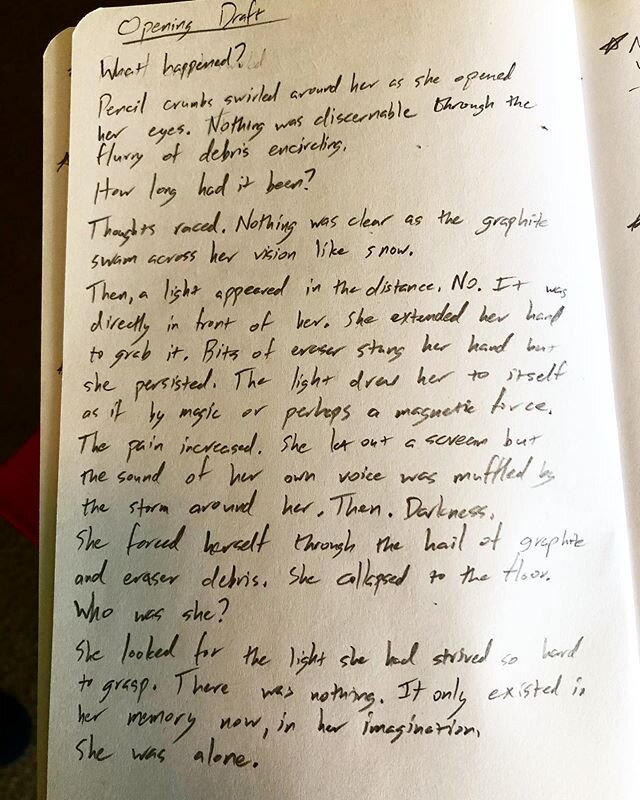 Opening Draft
What happened?
Pencil crumbs swirled around her as she opened
her eyes. Nothing was discernable through the
flurry of debris encircling.
How long had it been?
Thoughts raced. Nothing was clear as the graphite
swam across her vision like snow.
Then, a light appeared in the distance. No. It was
directly in front of her. She extended her hand
to grab it. Bits of eraser stung her hand but
she persisted. The light drew her to itself
as if by magic or perhaps a magnetic force.
The pain increased. She let out a scream but
the sound of her own voice was muffled by
the storm around her. Then. Darkness.
She forced herself through the hail of graphite
and eraser debris. She collapsed to the floor.
Who was she?
She looked for the light she had strived so hard
to grasp. There was nothing. It only existed in
her memory now, in her imagination.
She was alone.